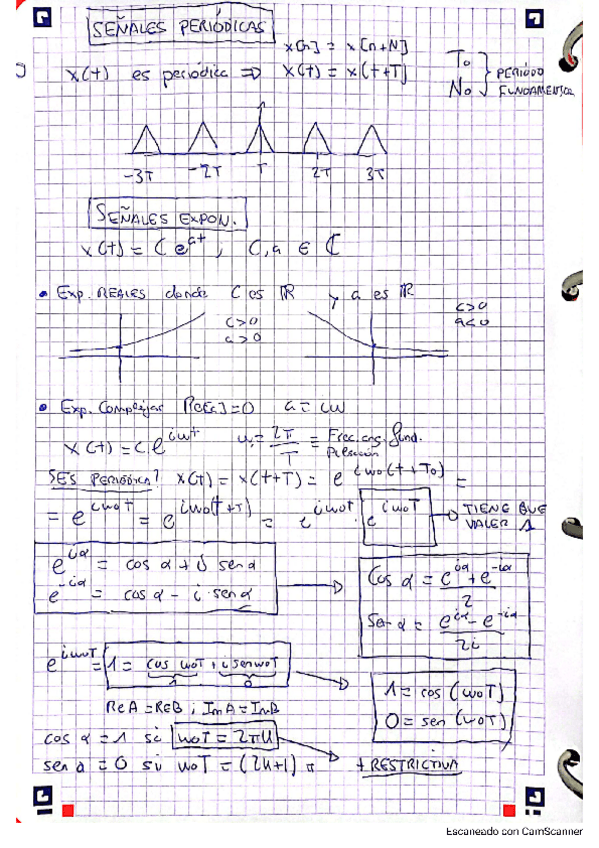 SEÑALES PERIÓDICAS
x[n] = x[n+N]
x(t) es periódica => x(t) = x(t+T)
To
No } PERIODO FUNDAMENTAL
-3T -2T T 2T 3T
SEÑALES EXPON.
x(t) = C e^{at}, C, a ∈ ℂ
• Exp. REALES donde C es ℝ y a es ℝ
c>0
a>0
c>0
a<0
• Exp. Complejas Re[a]=0 a = iω
x(t) = C·e^{iωt} ω₀ = 2π/T = Frec. ang. fund.
Pulsación
¿ES PERIÓDICA? x(t) = x(t+T) = e^{iωo(t+To)} =
= e^{iωoT} = e^{iωo(t+T)} = e^{iωot} · e^{iωoT} → TIENE QUE VALER 1
e^{iα} = cos α + i sen α
e^{-iα} = cos α - i · sen α
Cos α = (e^{iα} + e^{-iα})/2
Sen α = (e^{iα} - e^{-iα})/2i
e^{iωoT} = 1 = cos ωoT + i sen ωoT
1 0
Re A = Re B ; Im A = Im B
1 = cos (ωoT)
0 = sen (ωoT)
cos α = 1 si ωoT = 2πk
sen α = 0 si ωoT = (2k+1) π
+ RESTRICTIVA
Escaneado con CamScanner